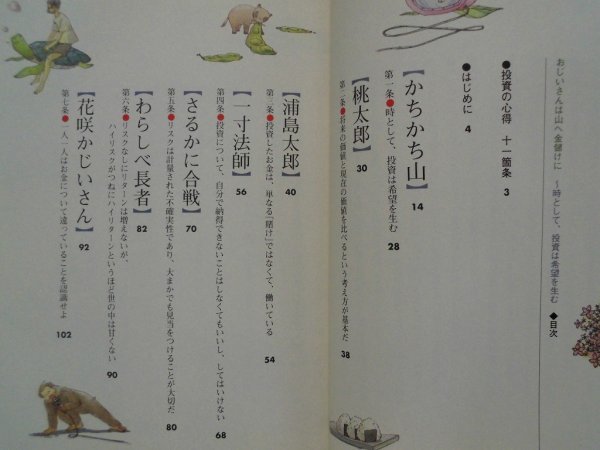 おじいさんは山へ金儲けに 〜時として、投資は希望を生む ◆目次
●投資の心得 十一箇条 3
●はじめに 4
【かちかち山】 14
第一条●時として、投資は希望を生む 28
【桃太郎】 30
第二条●将来の価値と現在の価値を比べるという考え方が基本だ 38
【浦島太郎】 40
第三条●投資したお金は、単なる「賭け」ではなくて、働いている 54
【一寸法師】 56
第四条●投資について、自分で納得できないことはしなくてもいいし、してはいけない 68
【さるかに合戦】 70
第五条●リスクは計量された不確実性であり、大まかでも見当をつけることが大切だ 80
【わらしべ長者】 82
第六条●リスクなしにリターンは増えないが、
ハイリスクがつねにハイリターンというほど世の中は甘くない 90
【花咲かじいさん】 92
第七条●一人一人はお金について違っていることを認識せよ 102